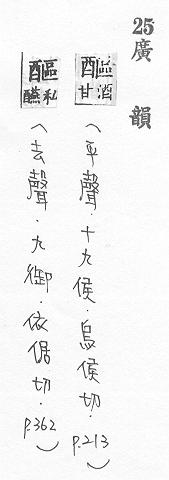 25廣韻
䤔 酒甘(平聲．十九侯．烏侯切．p.213)
䤔 私醼(去聲．九御．依倨切．p.362)